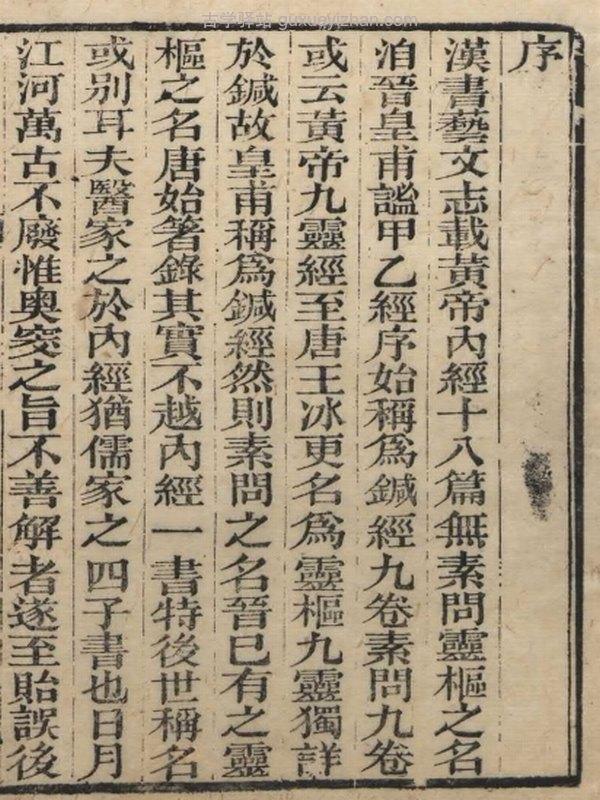 古学驿站 guxueyizhan.com
序
漢書藝文志載黃帝內經十八篇無素問靈樞之名
洎晉皇甫謐甲乙經序始稱爲鍼經九卷素問九卷
或云黃帝九靈經至唐王冰更名爲靈樞九靈獨詳
於鍼故皇甫稱爲鍼經然則素問之名晉已有之靈
樞之名唐始箸錄其實不越內經一書特後世稱名
或別耳夫醫家之於內經猶儒家之四子書也日月
江河萬古不廢惟奧窔之旨不善解者遂至貽誤後